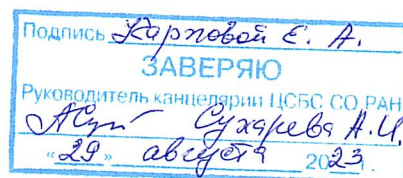 Подпись Карповой Е. А.
ЗАВЕРЯЮ
Руководитель канцелярии ЦСБС СО РАН
Сухарева А.И.
«29» августа 2023 г.